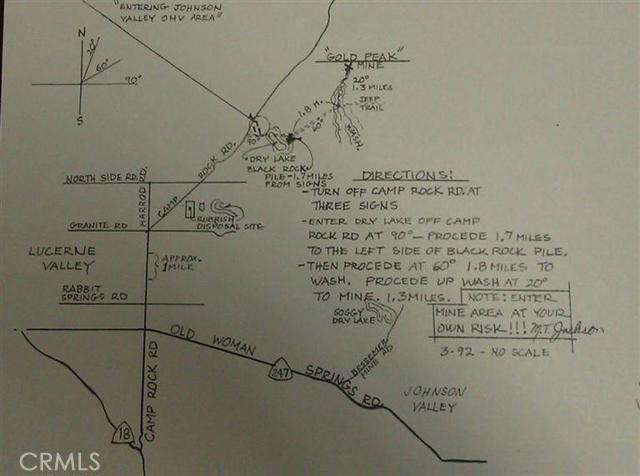 "ENTERING JOHNSON
VALLEY OHV AREA"
N
20°
60°
90°
S
"GOLD PEAK"
MINE
20°
1.3 MILES
JEEP
TRAIL
WASH.
1.8 M.
60°
90°
DRY LAKE
BLACK ROCK
PILE-1.7 MILES
FROM SIGNS
CAMP ROCK RD.
NORTH SIDE RD.
HARROD RD.
GRANITE RD
RUBBISH
DISPOSAL SITE
LUCERNE
VALLEY
APPROX.
1 MILE
RABBIT
SPRINGS RD
DIRECTIONS:
-TURN OFF CAMP ROCK RD. AT
THREE SIGNS
-ENTER DRY LAKE OFF CAMP
ROCK RD AT 90°-PROCEDE 1.7 MILES
TO THE LEFT SIDE OF BLACK ROCK PILE.
-THEN PROCEDE AT 60° 1.8 MILES TO
WASH. PROCEDE UP WASH AT 20°
TO MINE. 1.3 MILES.
NOTE: ENTER
MINE AREA AT YOUR
OWN RISK!!! M.T. Jackson
3-92 - NO SCALE
SOGGY
DRY LAKE
BESSEMER
MINE RD
OLD WOMAN SPRINGS RD.
247
JOHNSON
VALLEY
CAMP ROCK RD
18
CRMLS